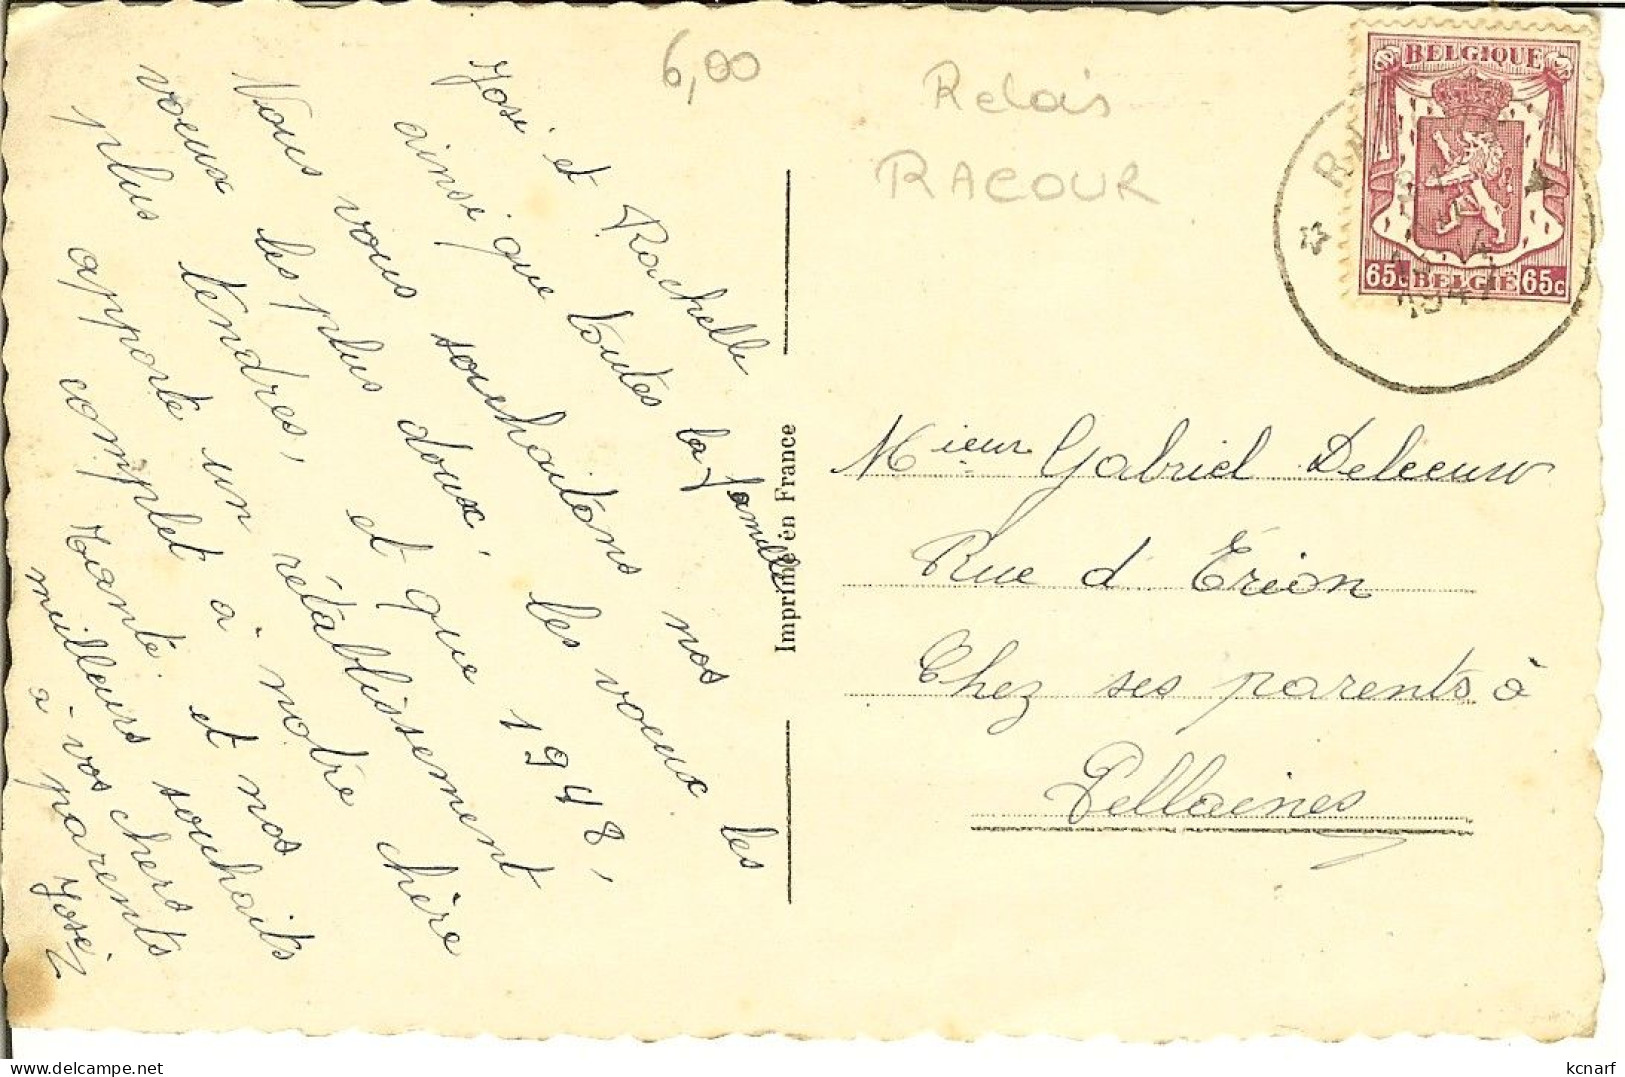 6,00
Relais
RACOUR
BELGIQUE
65c BELGIË 65c
1947
José et Rachelle
ainsi que toutes la famille
Vous vous souhaitons nos
voeux les plus doux, les voeux les
plus tendres, et que 1948,
apporte un rétablissement
complet à notre chère
Tante et nos
meilleurs souhaits
à vos chers
parents
José
Imprimé en France
Mieur Gabriel Deleeuw
Rue d'Érion
Chez ses parents à
Pellaines
kcnarf